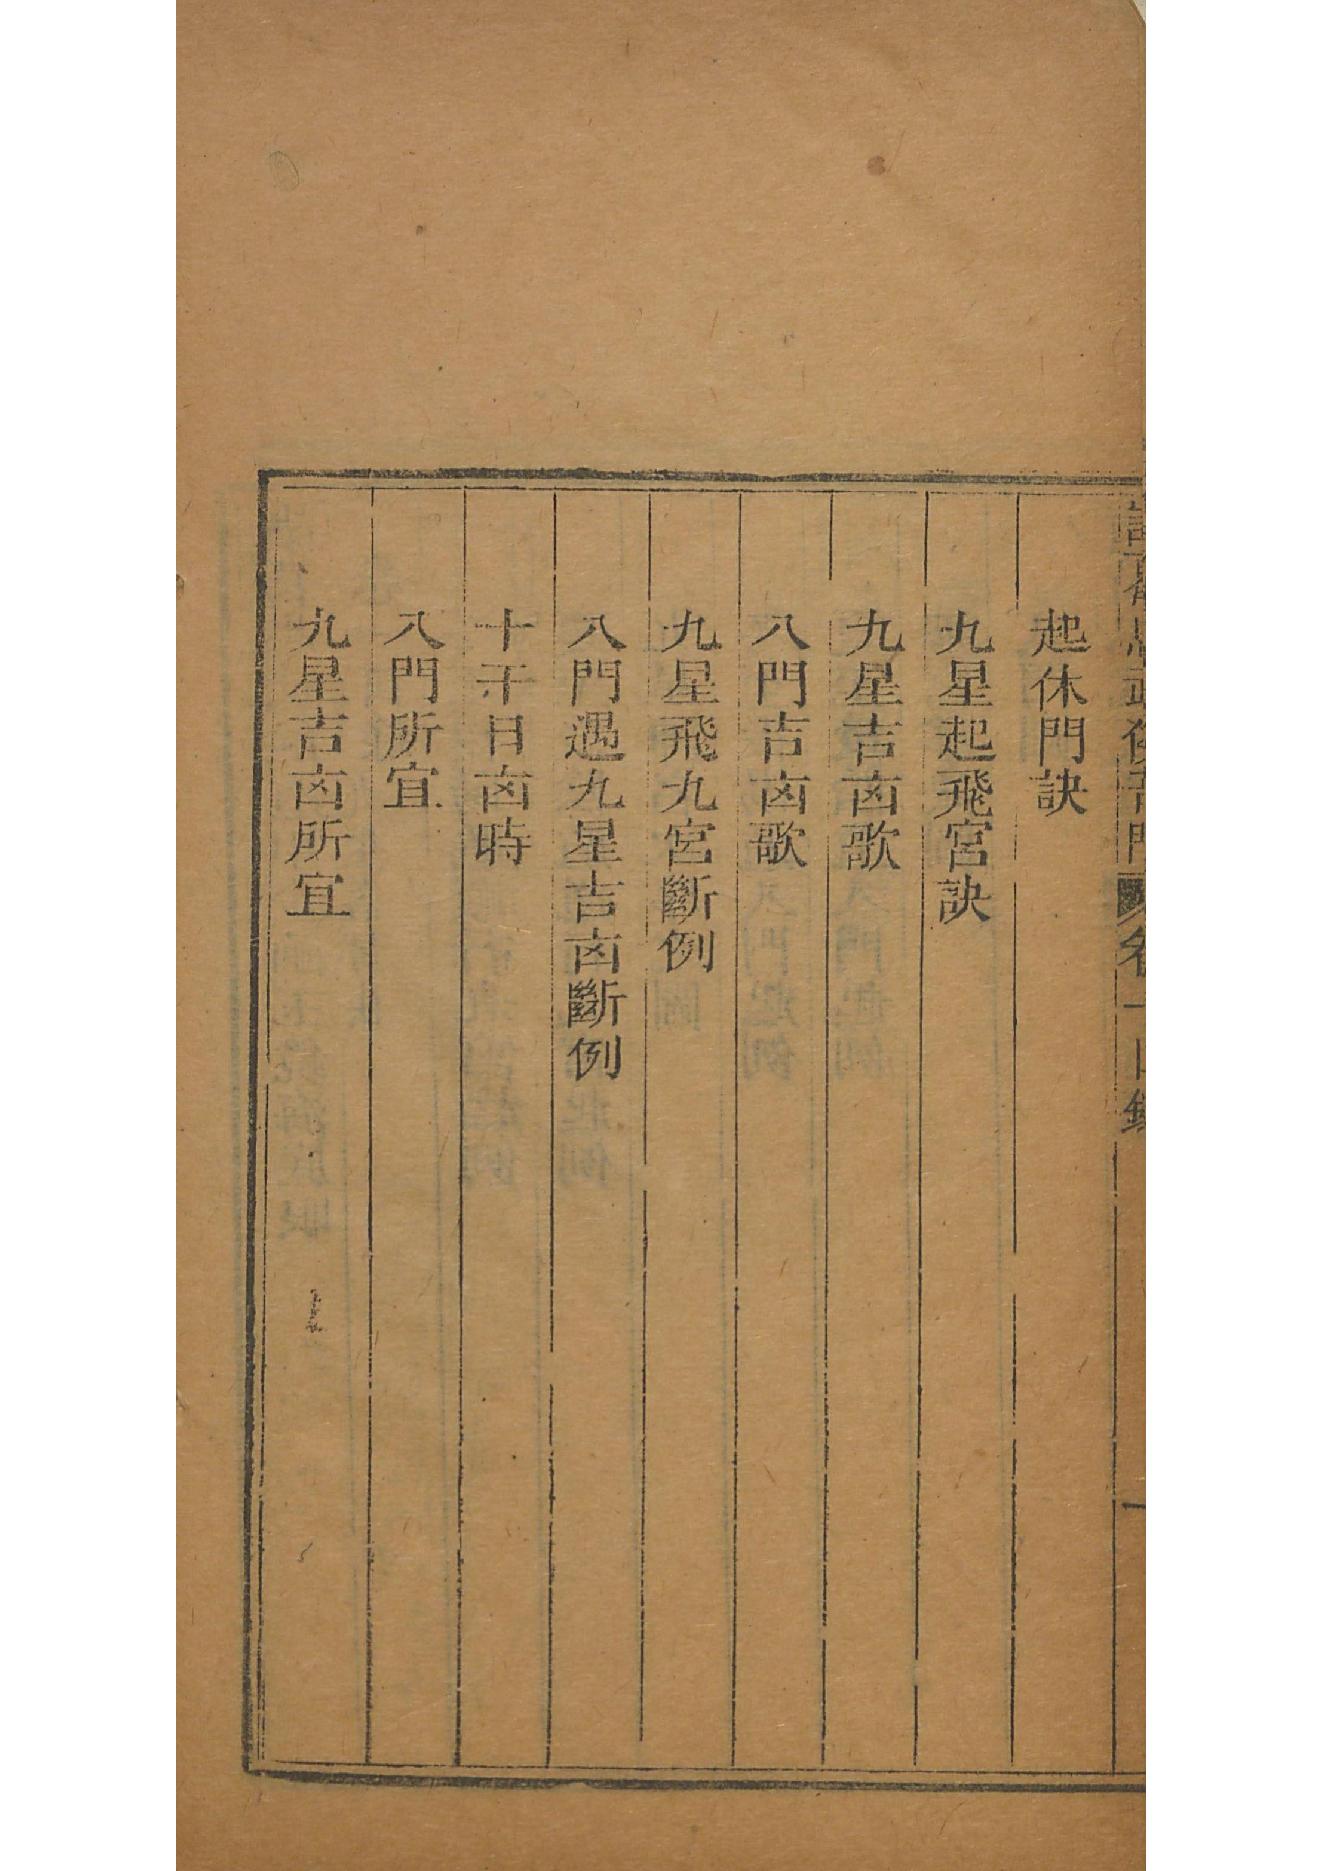 起休門訣
九星起飛宮訣
九星吉凶歌
八門吉凶歌
九星飛九宮斷例
八門遇九星吉凶斷例
十干日凶時
八門所宜
九星吉凶所宜